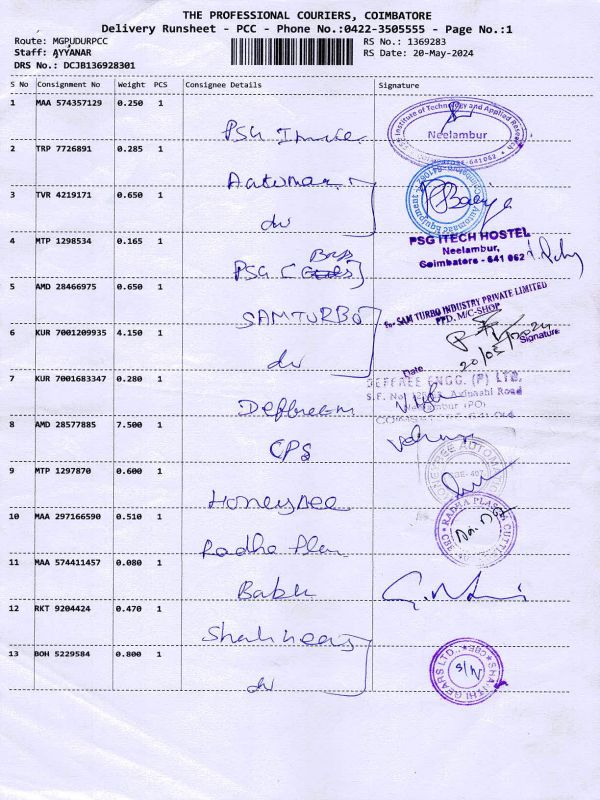 THE PROFESSIONAL COURIERS, COIMBATORE
Delivery Runsheet - PCC - Phone No.:0422-3505555 - Page No.:1
Route: MGPUDURPCC RS No.: 1369283
Staff: AYYANAR RS Date: 20-May-2024
DRS No.: DCJB136928301
S No Consignment No Weight PCS Consignee Details Signature
1 MAA 574357129 0.250 1 PSG
PSG Institute of Technology and Applied Research
Neelambur
2 TRP 7726891 0.285 1
3 TVR 4219171 0.650 1 do
PSG ITECH HOSTEL
Neelambur,
Coimbatore - 641 062
4 MTP 1298534 0.165 1 PSG (Boys)
5 AMD 28466975 0.650 1 SAMTURBO
for SAM TURBO INDUSTRY PRIVATE LIMITED
PPD. M/C-SHOP
Signature
20/05/2024
Date
6 KUR 7001209935 4.150 1 do
DEFFREE ENGG. (P) LTD.
S.F. No. Avinashi Road
Neelambur (PO)
7 KUR 7001683347 0.280 1 Deffreem
8 AMD 28577885 7.500 1 CPS
9 MTP 1297870 0.600 1 Honeybee
10 MAA 297166590 0.510 1 Radha Plas
RADHA PLASTIC
11 MAA 574411457 0.080 1 Babu
12 RKT 9204424 0.470 1 Shanthi Gears
13 BOH 5229584 0.800 1 do
SHANTHI GEARS LTD., CBE